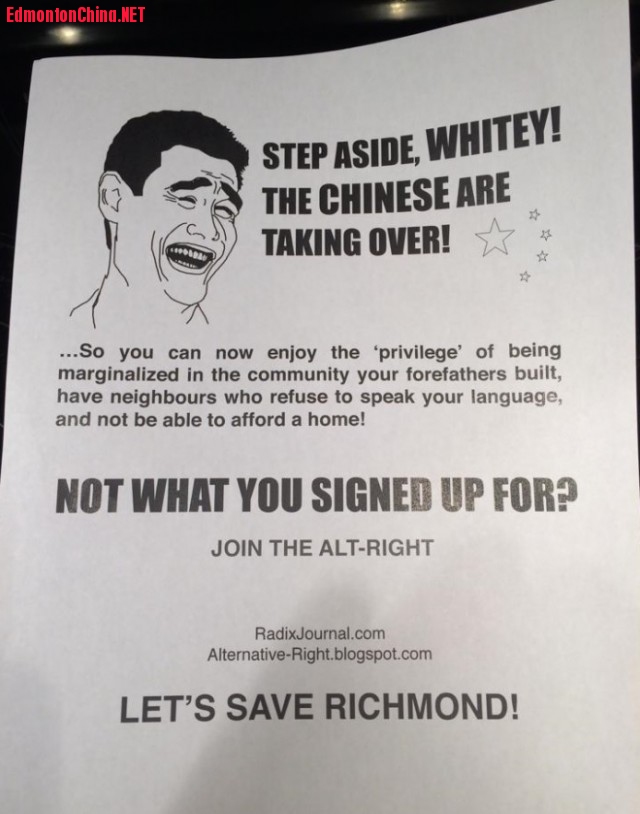 EdmontonChina.NET
STEP ASIDE, WHITEY!
THE CHINESE ARE
TAKING OVER!
...So you can now enjoy the 'privilege' of being
marginalized in the community your forefathers built,
have neighbours who refuse to speak your language,
and not be able to afford a home!
NOT WHAT YOU SIGNED UP FOR?
JOIN THE ALT-RIGHT
RadixJournal.com
Alternative-Right.blogspot.com
LET'S SAVE RICHMOND!